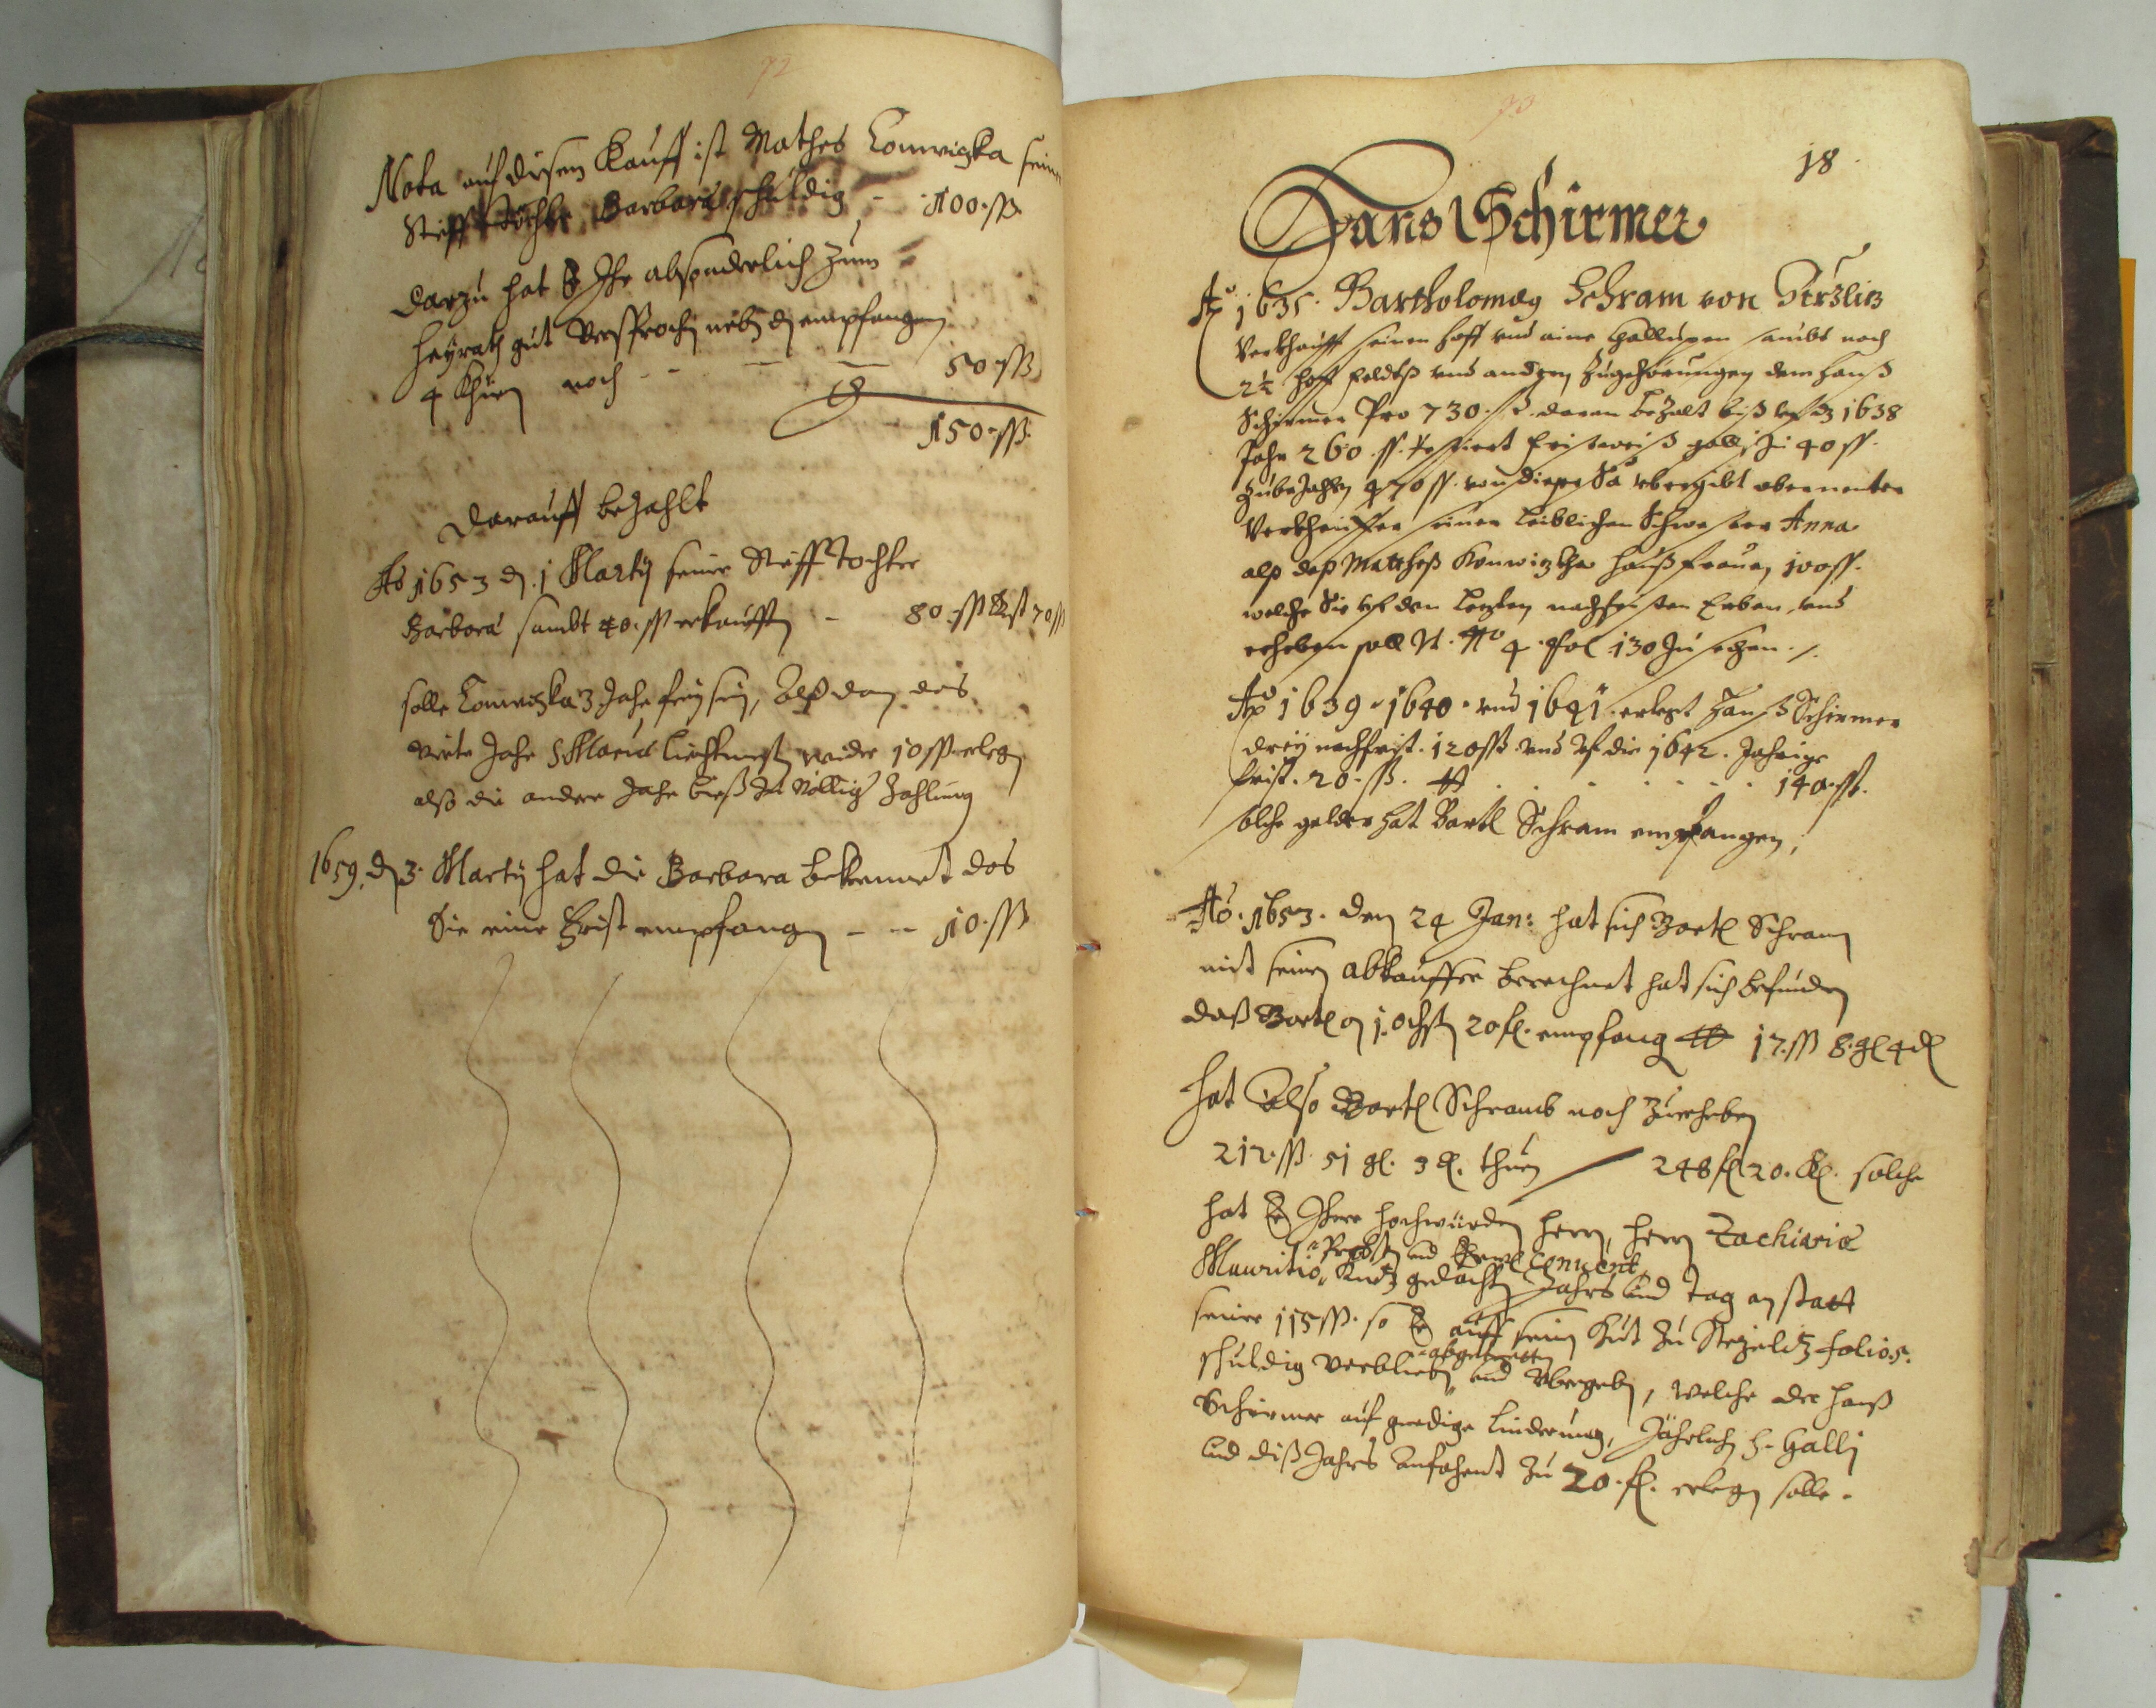 72
Nota auf disen Kauff ist Mathes Conwizka seiner
Stieff Tochter Barbara schuldig - 100 ss
Darzu hat Er Ihr absonderlich zum
Heÿrath gut versprochen neben den empfangen
4 Khüen noch - - - 50 ss
150 ss
Darauff bezahlt
Ao 1653 den 1 Martÿ seiner Stieff Tochter
Barbara sambt 40 ss erkaufften - 80 ss Rest 70 ss
solle Conwizka 3 Jahr freÿ sein, Alß dan das
vierte Jahr S Maria Liechtmeß wieder 10 ss erlegen
also die andere Jahr bieß zu völliger Zahlung
1659 den 3. Martÿ hat die Barbara bekennet das
Sie eine Frist empfangen - - 10 ss
73
18
Hans Schirmer
Ao 1635. Bartholomæy Schram von
Verkhaufft seinen Hoff und eine Challupen sambt noch
2½ Hoff Feldtß und andern Zugehörungen dem Hanß
Schirmer Pro 730 ss. daran bezalt biß uf dz 1638
Jahr 260 ss. restiert fristweiß galli zu 40 ss.
zubezahlen 470 ss. von dieser Sa ubergibt obernenter
Verkheuffer seiner leiblichen Schwester Anna
alß deß Mattheß Konwizkha Haußfrauen 100 ss.
welche Sie uf den lezten nachfristen Erben und
erheben soll N. Ao 4. Fol 130 zu sehen ./.
Ao 1639. 1640. und 1641 erlegt Hanß Schirmer
dreÿ nachfrist. 120 ss und uf die 1642. Jahrige
frist. 20. ss. . . . . . . 140. ss.
solche gelder hat Bartl Schram empfangen;
Ao. 1653. den 24 Jan: hat sich Bartl Schram
mit seinem abkauffer berechnet hat sich befunden
daß Bartl an 1. Ochsen 20 fl. empfangen 17. ss 8. gl 4 d
Hat Also Bartl Schramb noch zuerheben
212. ss. 51 gl. 3 d. thuen 248 fl 20. kr. solche
hat Er Ihrer Hochwürden Herrn, Herrn Zachariæ
Probsten und Convent
Mauritio gedachten Jahrs und tag an statt
seiner 115 ss. so Er auff sein Gut zu folio 5.
abgetretten
schuldig verblieben und übergeben, welche der Hanß
Schirmer auf gnedige Linderung, Jährlich S. Galli
und diß Jahrs Anfahent zu 20. fl. erlegen solle.